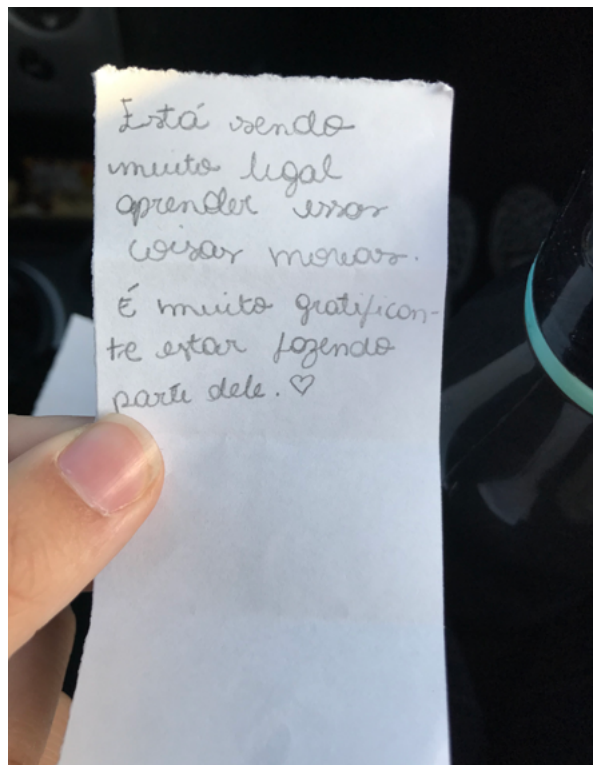 Está sendo
muito legal
aprender essas
coisas novas.
É muito gratifican-
te estar fazendo
parte dele. ♡